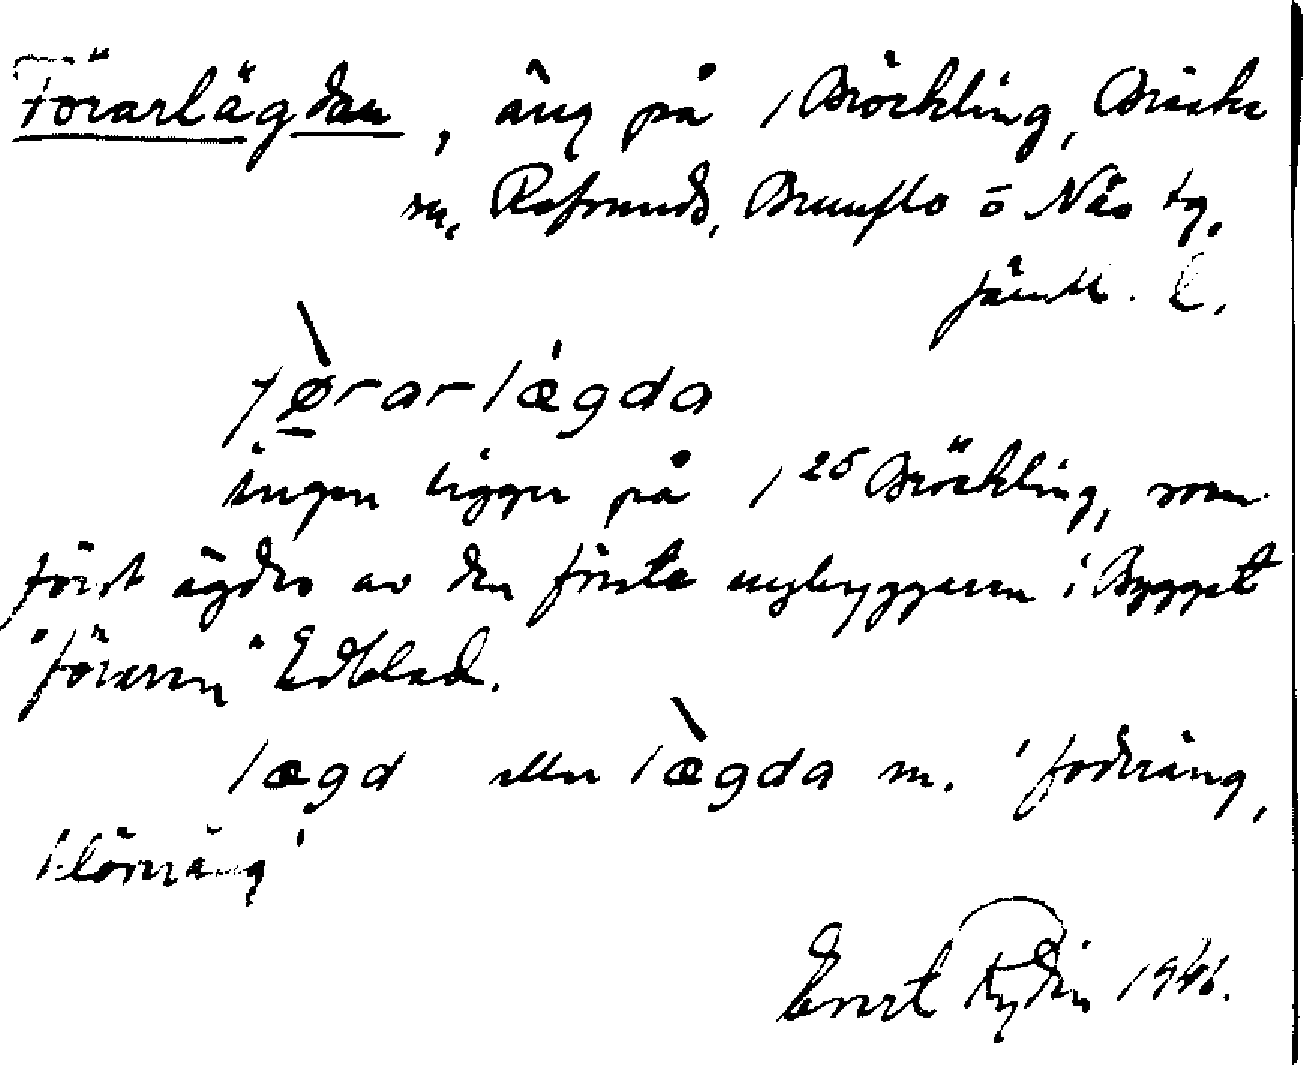 Förarlägdan, äng på 1 Mröckling, Bräcke
sn, Refsunds, Brunflo o Näs tg,
Jämtl. l.
førarlægda
ängen ligger på 1²⁵ Mröckling, som
först ägdes av den förste nybyggaren i Bygget
"föraren" Edblad.
lægd eller lægda m. 'foderäng,
klöveräng'
Ernst Rydin 1946.